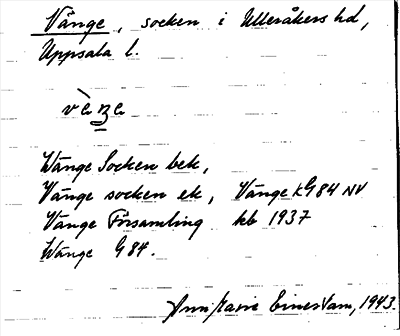 Vänge, socken i Ulleråkers hd,
Uppsala l.
Wänge Socken bek,
Vänge socken ek, Vänge kG84 NV
Vänge Församling kb 1937
Wänge G84.
1943.